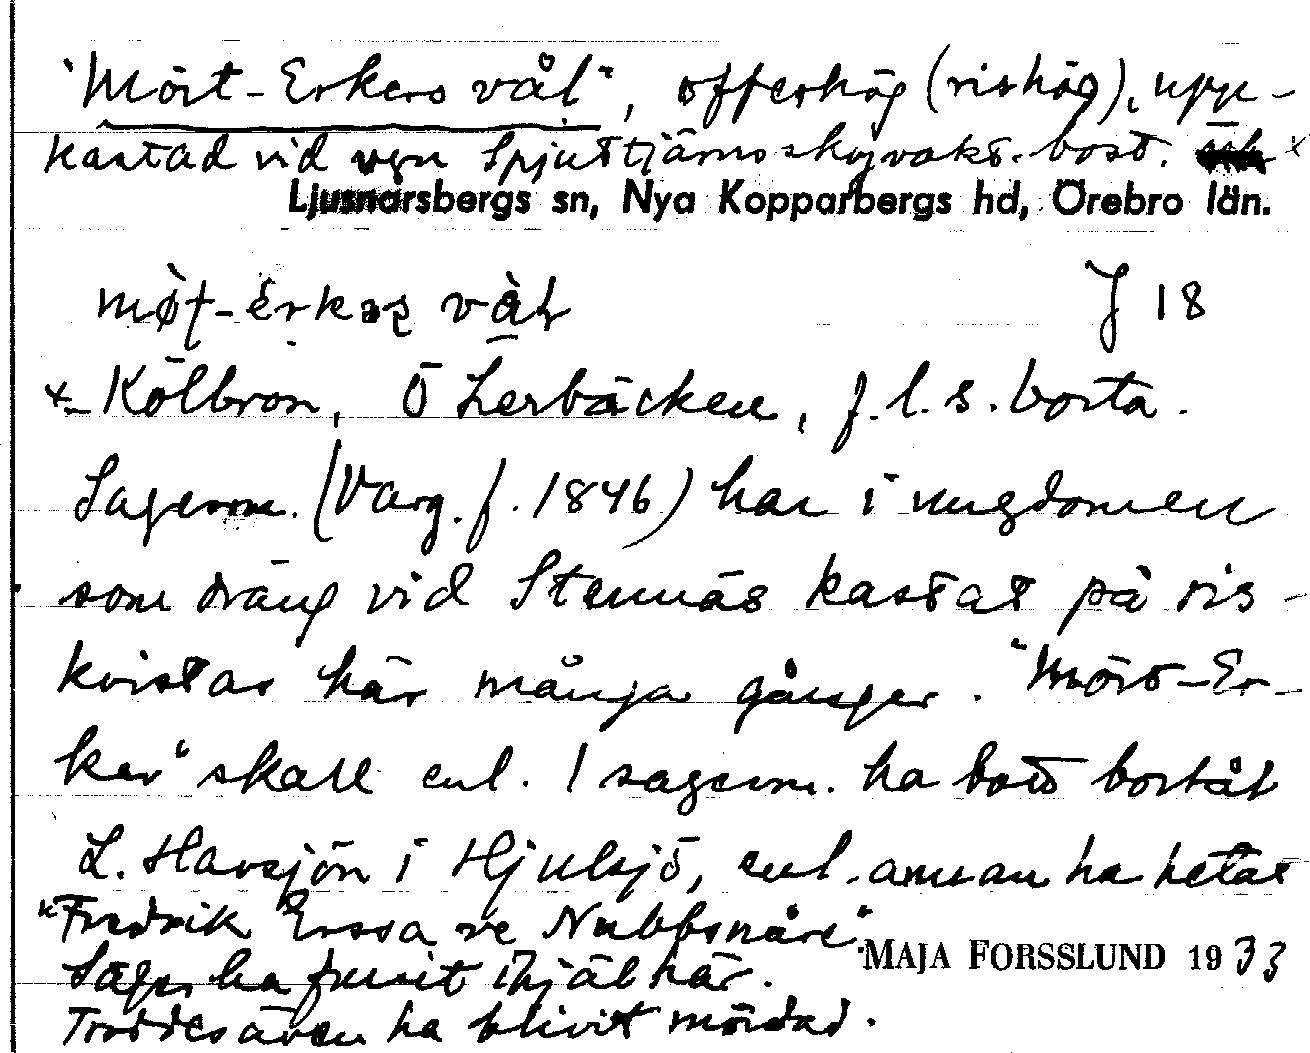 "Mört-Erkers vål", offerhög (rishög), upp-
kastad vid vgn Spjuttjärns skogvakt.bost. x
Ljusnarsbergs sn, Nya Kopparbergs hd, Örebro län.
J 18
x- Kölbron, Ö Lerbäcken, f.l.s. borta.
Sagesm. (Varg. f. 1846) har i ungdomen
som dräng vid Stennäs kastat på ris-
kvistar här många gånger. "Mört-Er-
ker" skall enl. 1 sagesm. ha bott bortåt
L. Havsjön i Hjulsjö, enl. annan ha hetat
"Fredrik Erssa ve Nubbsnåre".
MAJA FORSSLUND 1933
Säges ha frusit ihjäl här.
Troddes även ha blivit mördad.